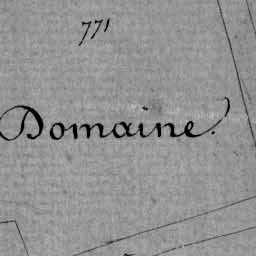 771
Domaine.